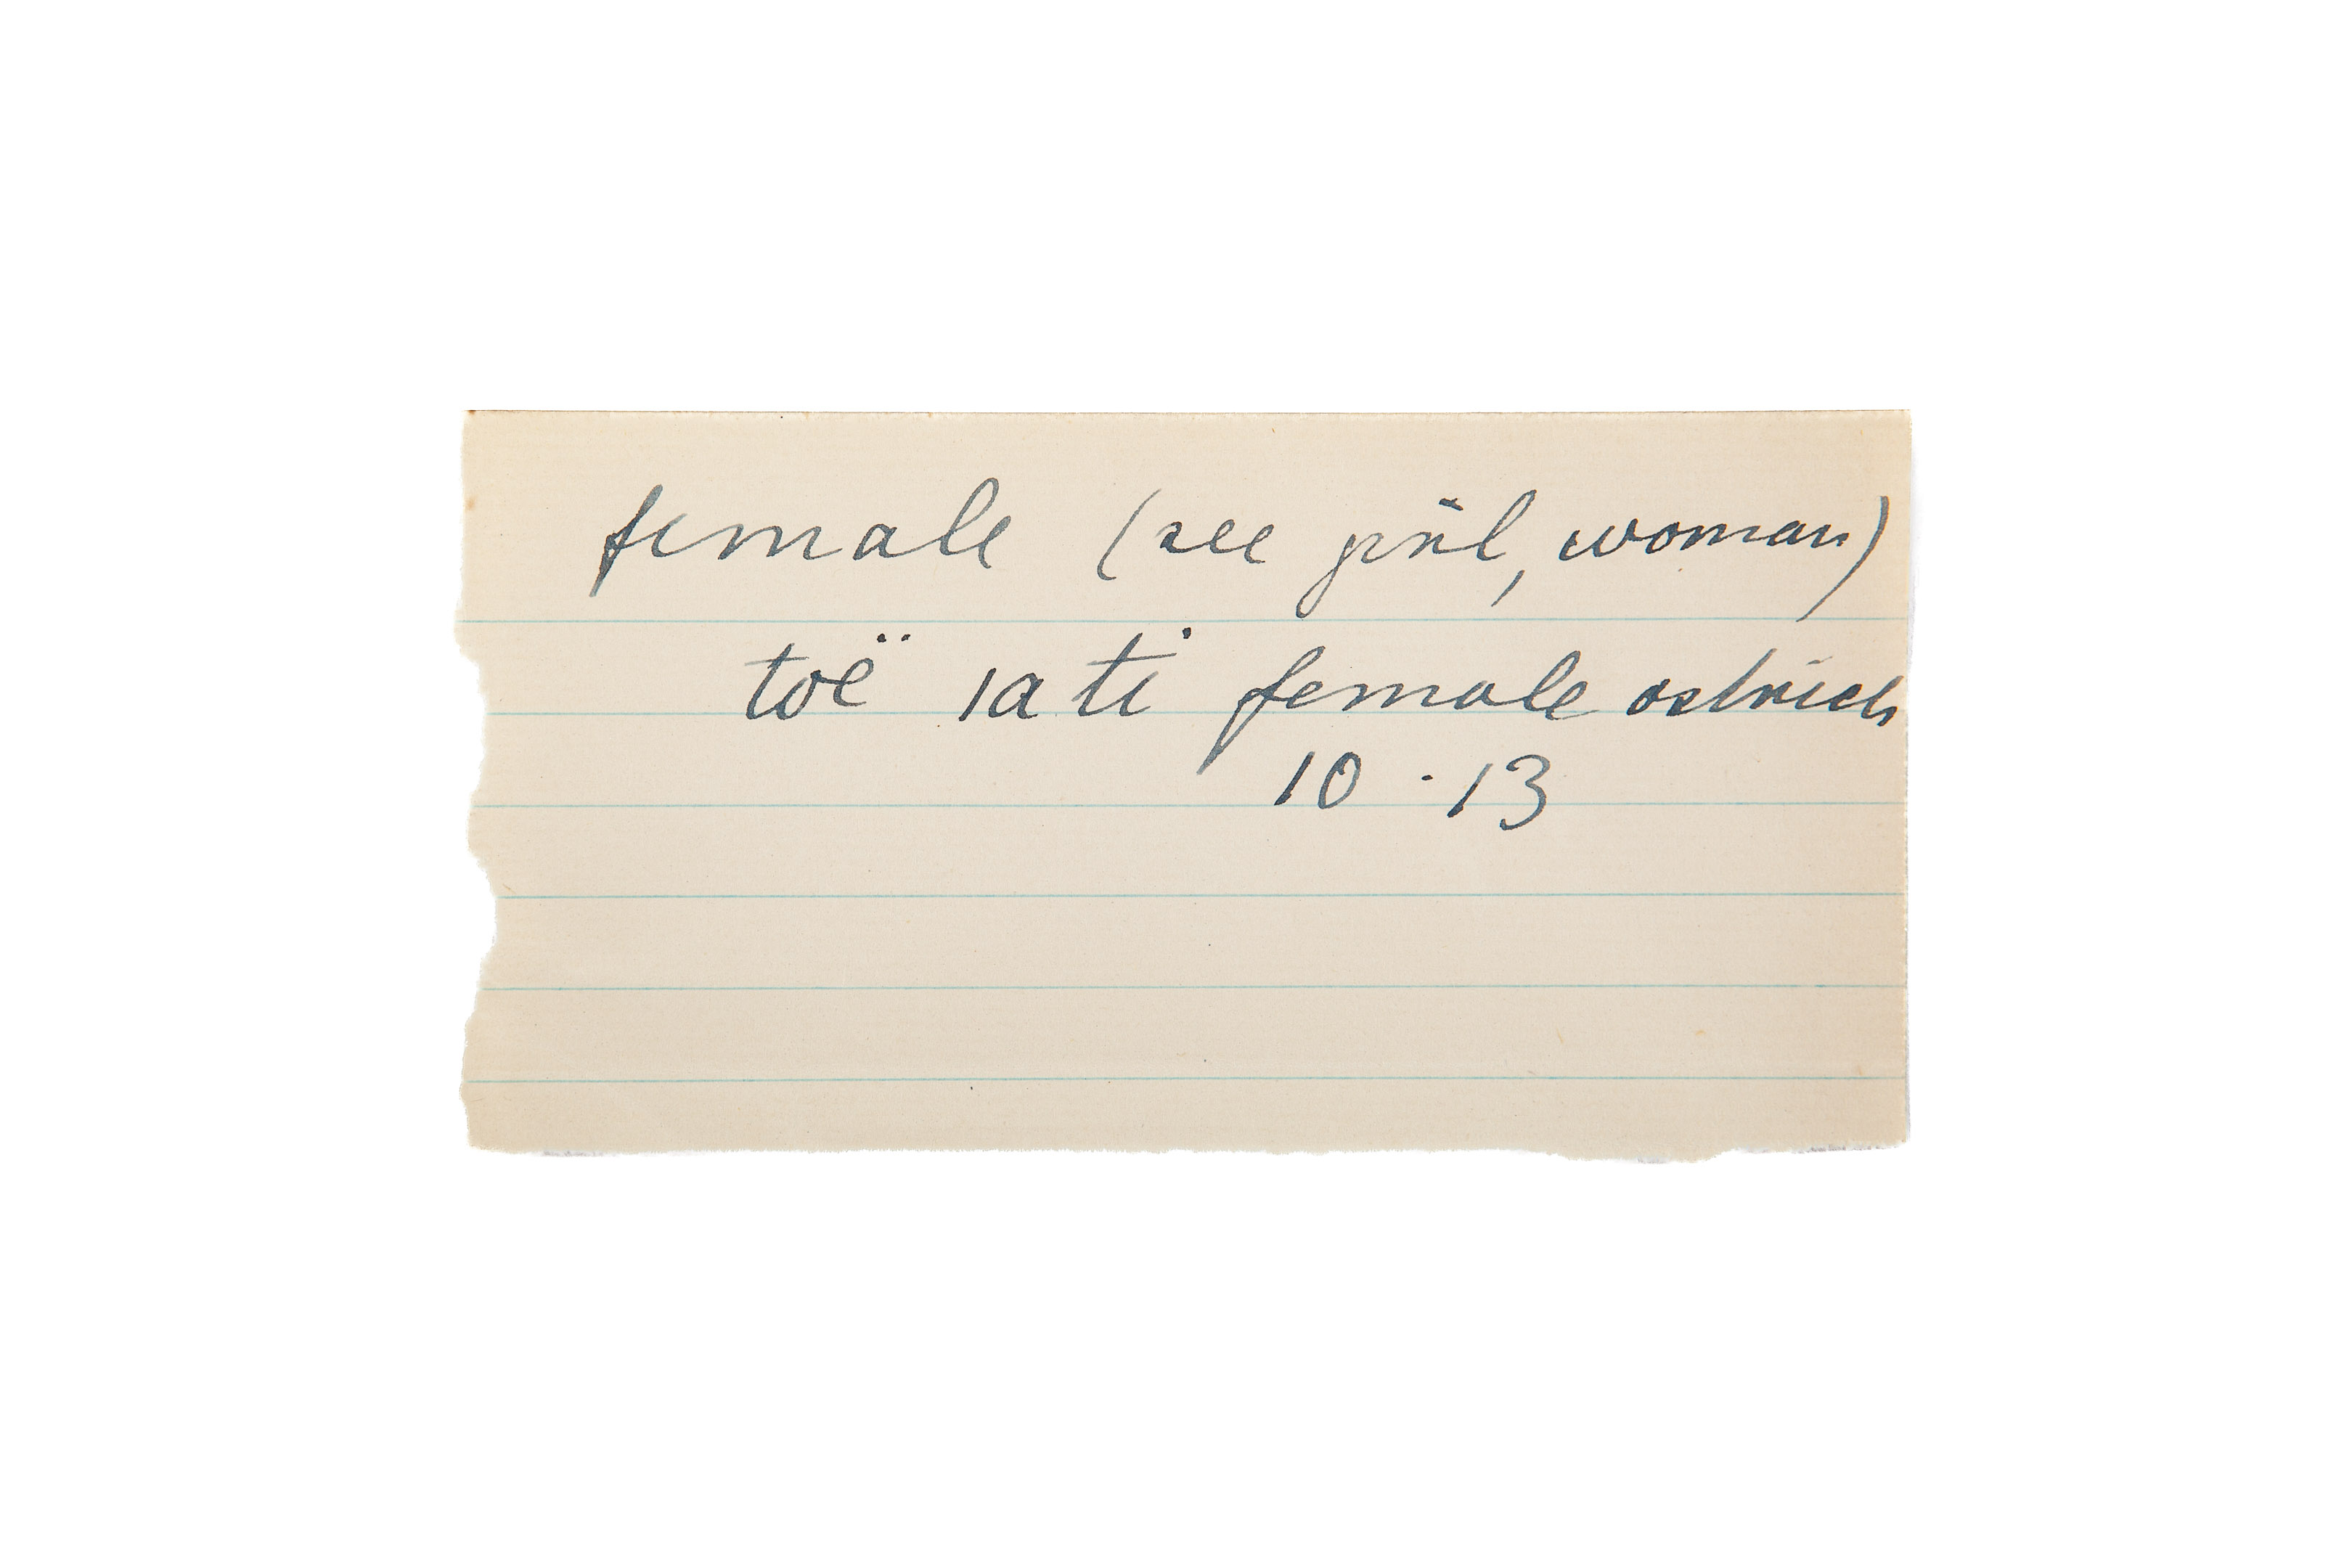 female (see girl, woman)
toë ıa ti female ostrich
10 · 13